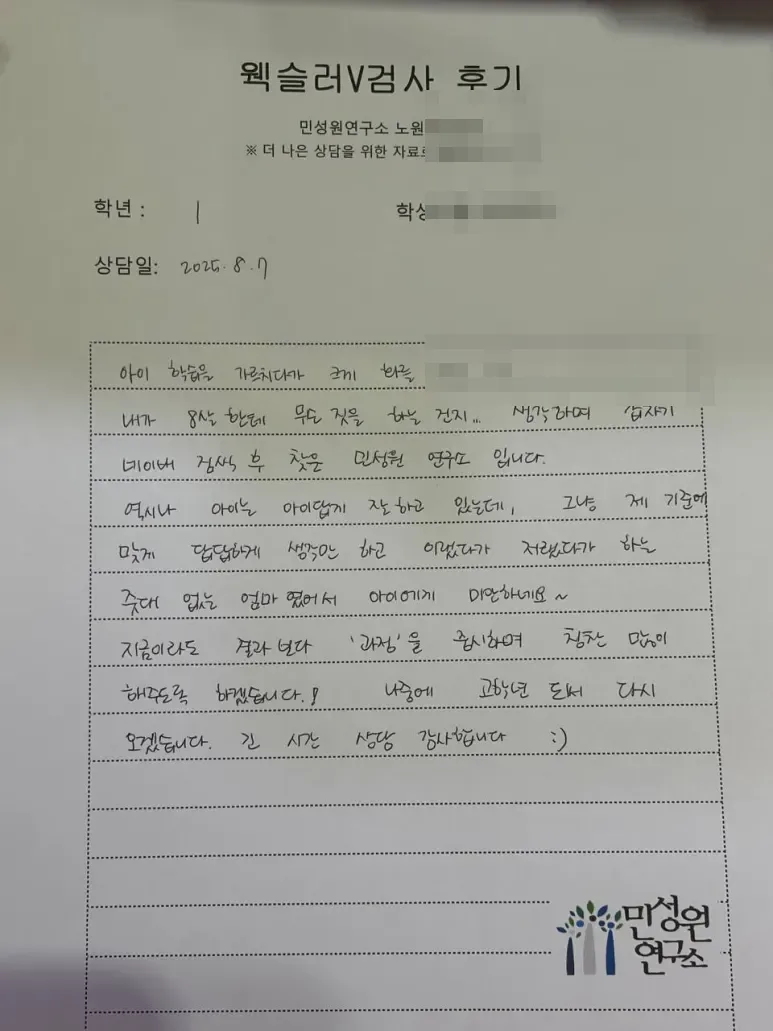 웩슬러V검사 후기
민성원연구소 노원
※ 더 나은 상담을 위한 자료로
학년 : 1
학생
상담일: 2025. 8. 7
아이 학습을 가르치다가 크게 화를
내가 8살 한테 무슨 짓을 하는 건지... 생각하며 갑자기
네이버 검색 후 찾은 민성원 연구소 입니다.
역시나 아이는 아이답게 잘하고 있는데, 그냥 제 기준에
맞게 답답하게 생각만 하고 이랬다가 저랬다가 하는
줏대 없는 엄마 였어서 아이에게 미안하네요~
지금이라도 결과보다 '과정'을 중시하며 칭찬 많이
해주도록 하겠습니다.! 나중에 고학년 되서 다시
오겠습니다. 긴 시간 상담 감사합니다 :)
민성원
연구소